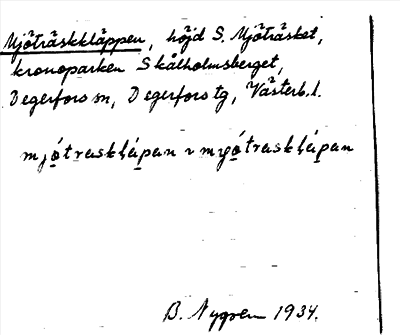 Mjöträskkläppen, höjd S. Mjöträsket,
kronoparken Skålholmsberget,
Degerfors sn, Degerfors tg, Västerb. l.
mjótrasklápan v myótrasklápan
B. Nygren 1934.